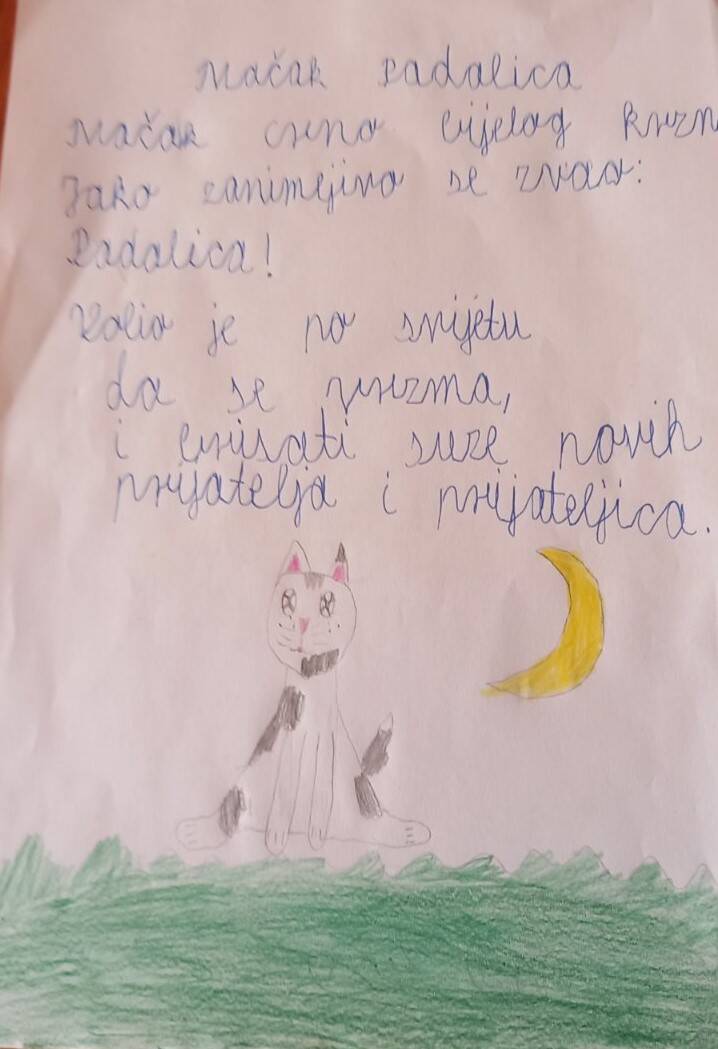 Mačak Padalica
Mačak crno bijelog krzn
Jako zanimljivo se zvao:
Padalica!
Volio je po svijetu
da se vrzma,
i brisati suze novih
prijatelja i prijateljica.